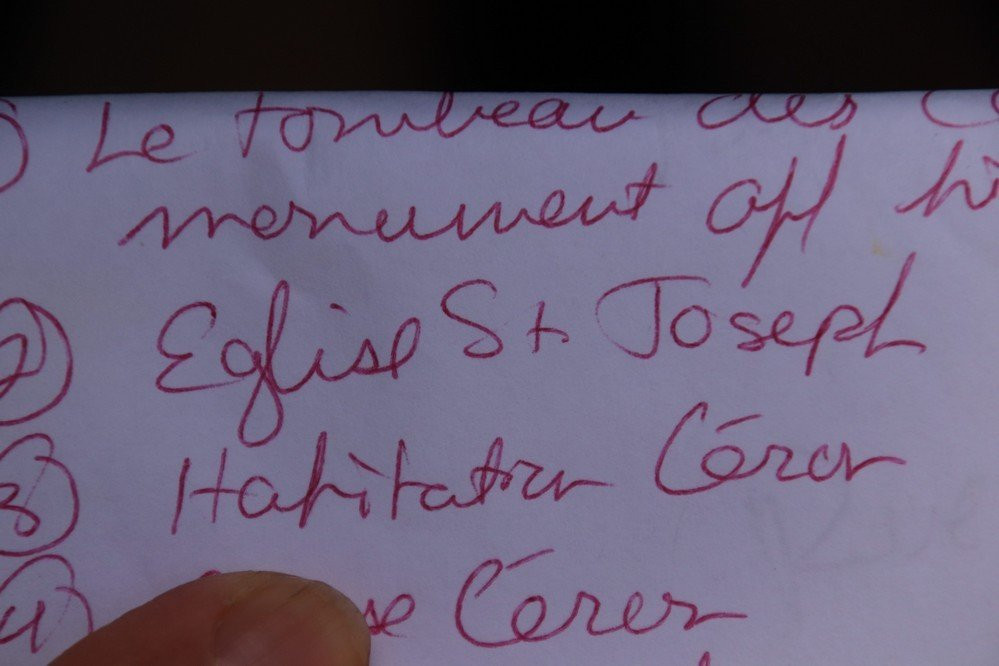 Le tombeau des
monument
② Eglise St Joseph
③ Habitation Céron
④ Céron